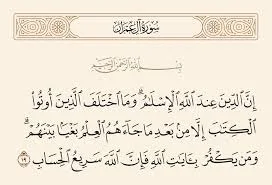 سُورَةُ آلِ عِمْرَانَ
بِسْمِ اللَّهِ الرَّحْمَٰنِ الرَّحِيمِ
إِنَّ ٱلدِّينَ عِندَ ٱللَّهِ ٱلْإِسْلَٰمُ ۗ وَمَا ٱخْتَلَفَ ٱلَّذِينَ أُوتُوا۟
ٱلْكِتَٰبَ إِلَّا مِنۢ بَعْدِ مَا جَآءَهُمُ ٱلْعِلْمُ بَغْيًۢا بَيْنَهُمْ ۗ
وَمَن يَكْفُرْ بِـَٔايَٰتِ ٱللَّهِ فَإِنَّ ٱللَّهَ سَرِيعُ ٱلْحِسَابِ ١٩